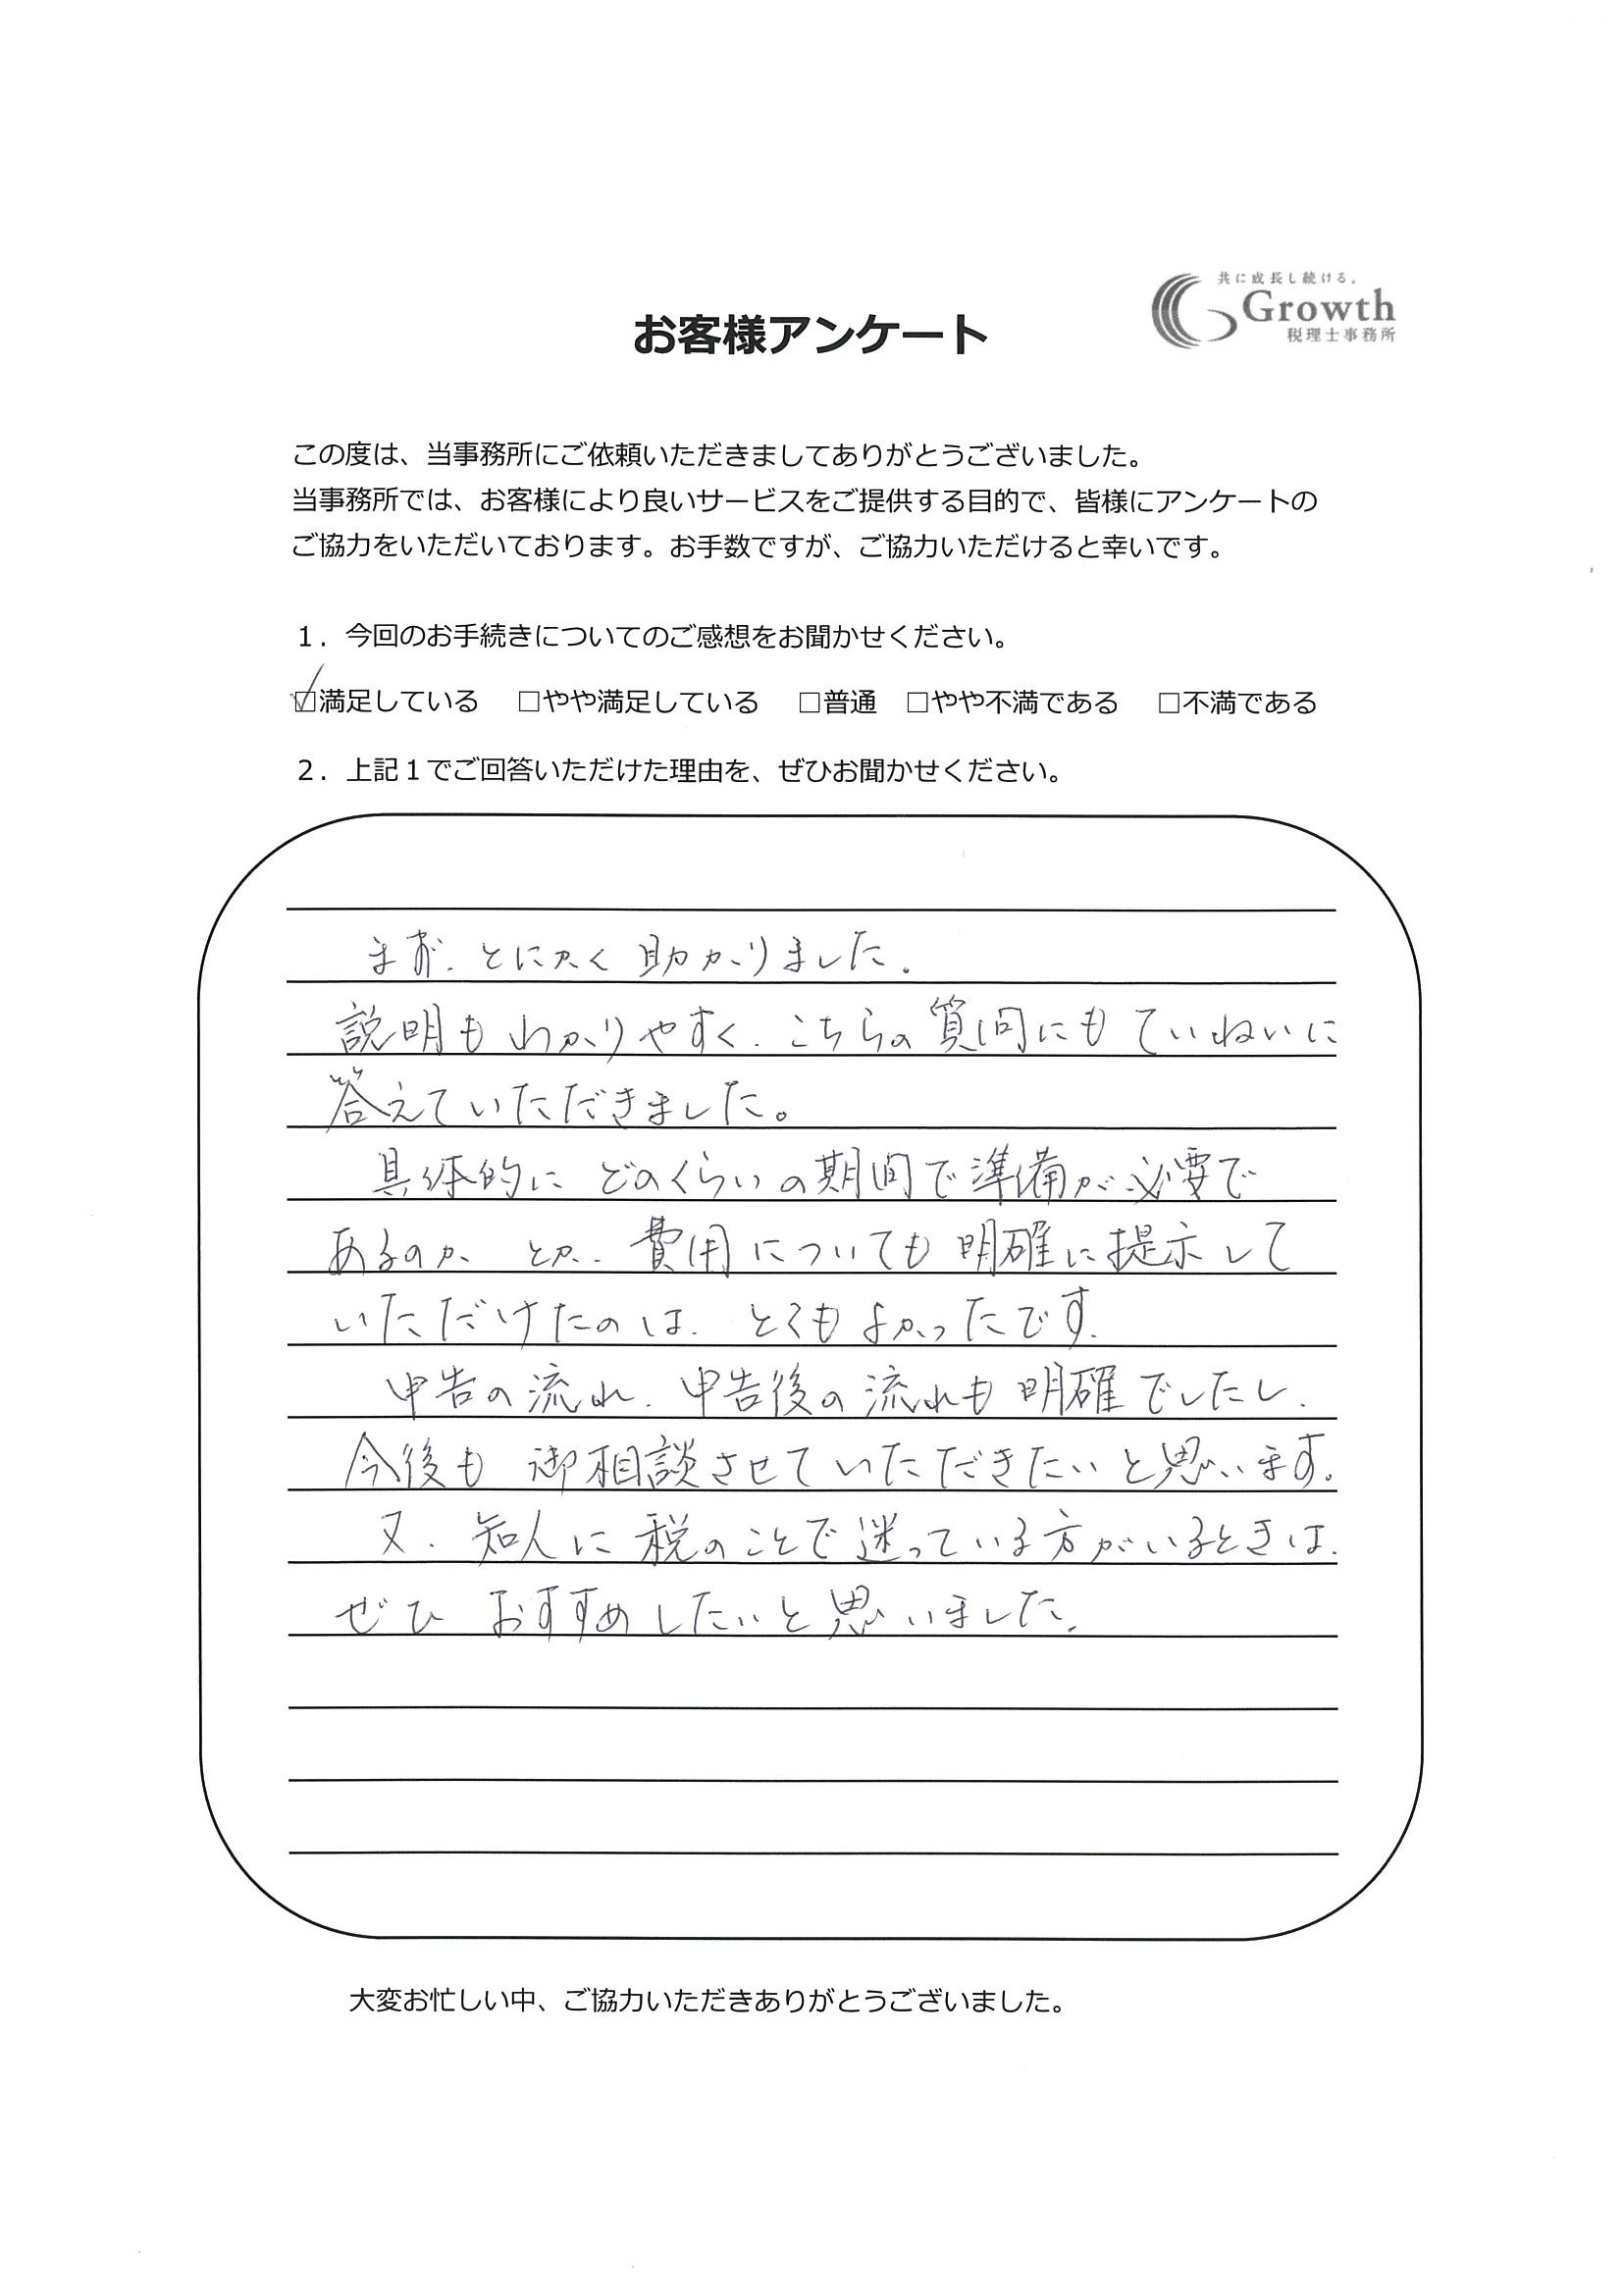 共に成長し続ける。
Growth
税理士事務所
お客様アンケート
この度は、当事務所にご依頼いただきましてありがとうございました。
当事務所では、お客様により良いサービスをご提供する目的で、皆様にアンケートの
ご協力をいただいております。お手数ですが、ご協力いただけると幸いです。
１．今回のお手続きについてのご感想をお聞かせください。
☑満足している □やや満足している □普通 □やや不満である □不満である
２．上記１でご回答いただけた理由を、ぜひお聞かせください。
まず、とにかく助かりました。
説明もわかりやすく、こちらの質問にもていねいに
答えていただきました。
具体的にどのくらいの期間で準備が必要で
あるのか とか、費用についても明確に提示して
いただけたのは、とてもよかったです。
申告の流れ、申告後の流れも明確でしたし、
今後も御相談させていただきたいと思います。
又、知人に税のことで迷っている方がいるときは、
ぜひ おすすめしたいと思いました。
大変お忙しい中、ご協力いただきありがとうございました。